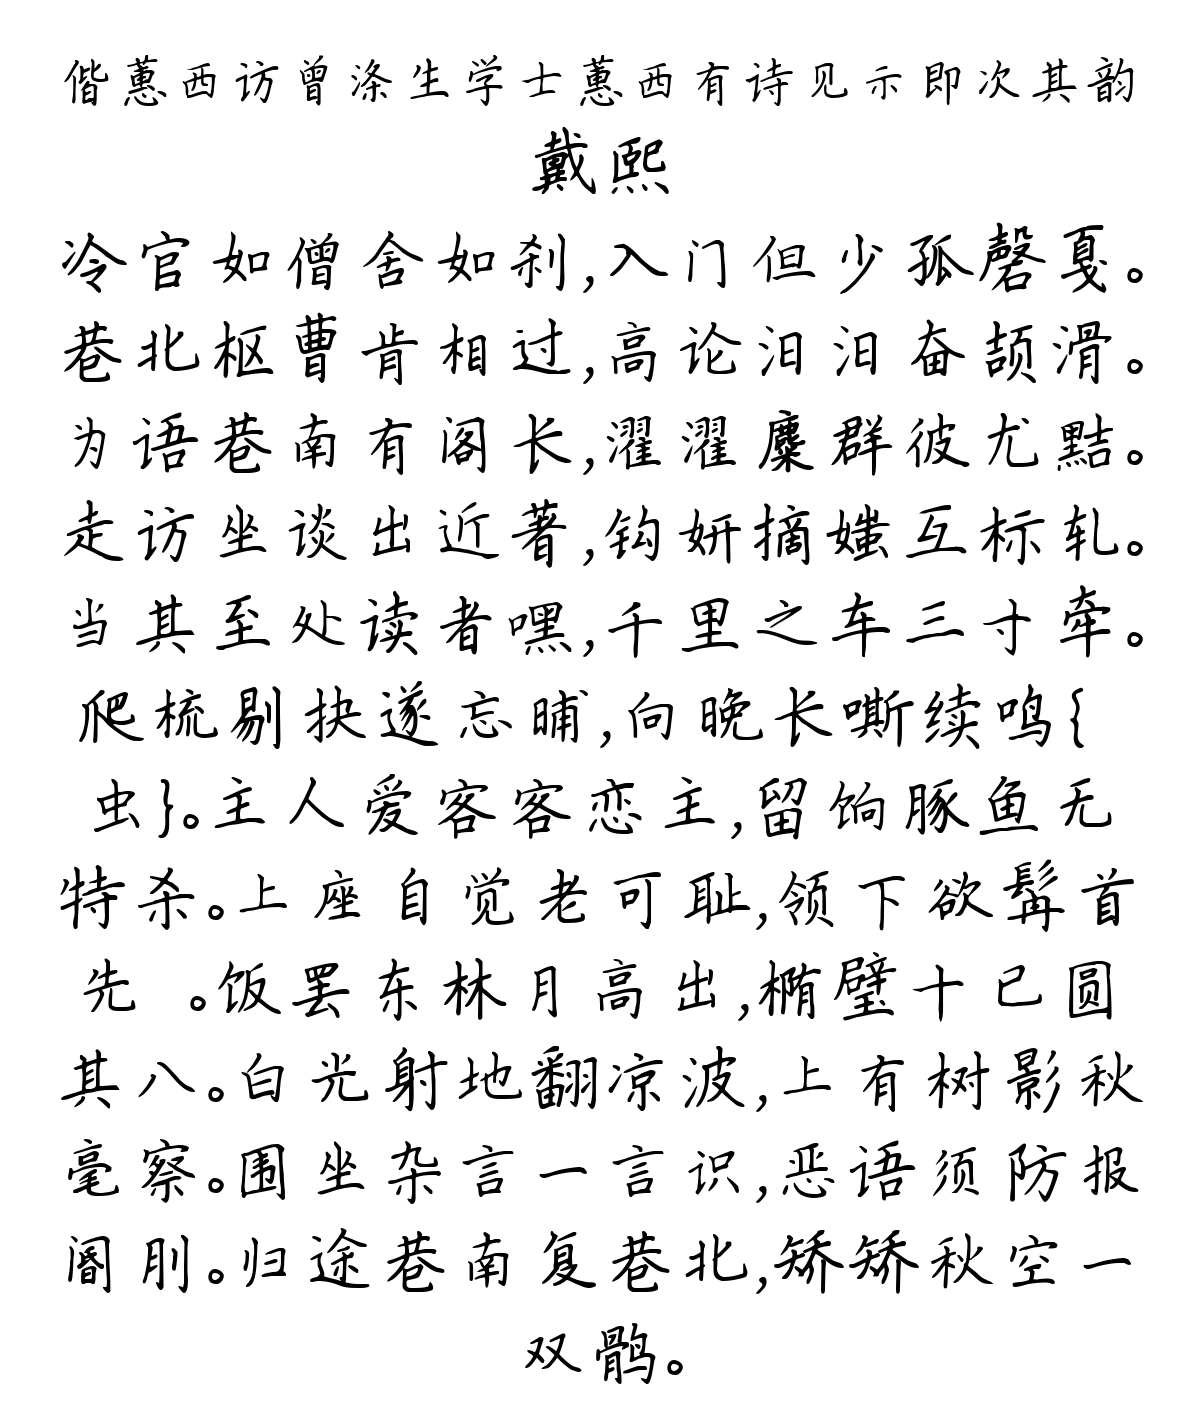 偕蕙西访曾涤生学士蕙西有诗见示即次其韵
戴熙
冷官如僧舍如刹,入门但少孤磬戛。
巷北枢曹肯相过,高论汩汩奋颉滑。
为语巷南有阁长,濯濯麋群彼尤黠。
走访坐谈出近著,钩妍摘媸互标轧。
当其至处读者嘿,千里之车三寸牵。
爬梳剔抉遂忘晡,向晚长嘶续鸣{
虫}。主人爱客客恋主,留饷豚鱼无
特杀。上座自觉老可耻,领下欲髯首
先 。饭罢东林月高出,椭璧十已圆
其八。白光射地翻凉波,上有树影秋
毫察。围坐杂言一言识,恶语须防报
阍刖。归途巷南复巷北,矫矫秋空一
双鹘。